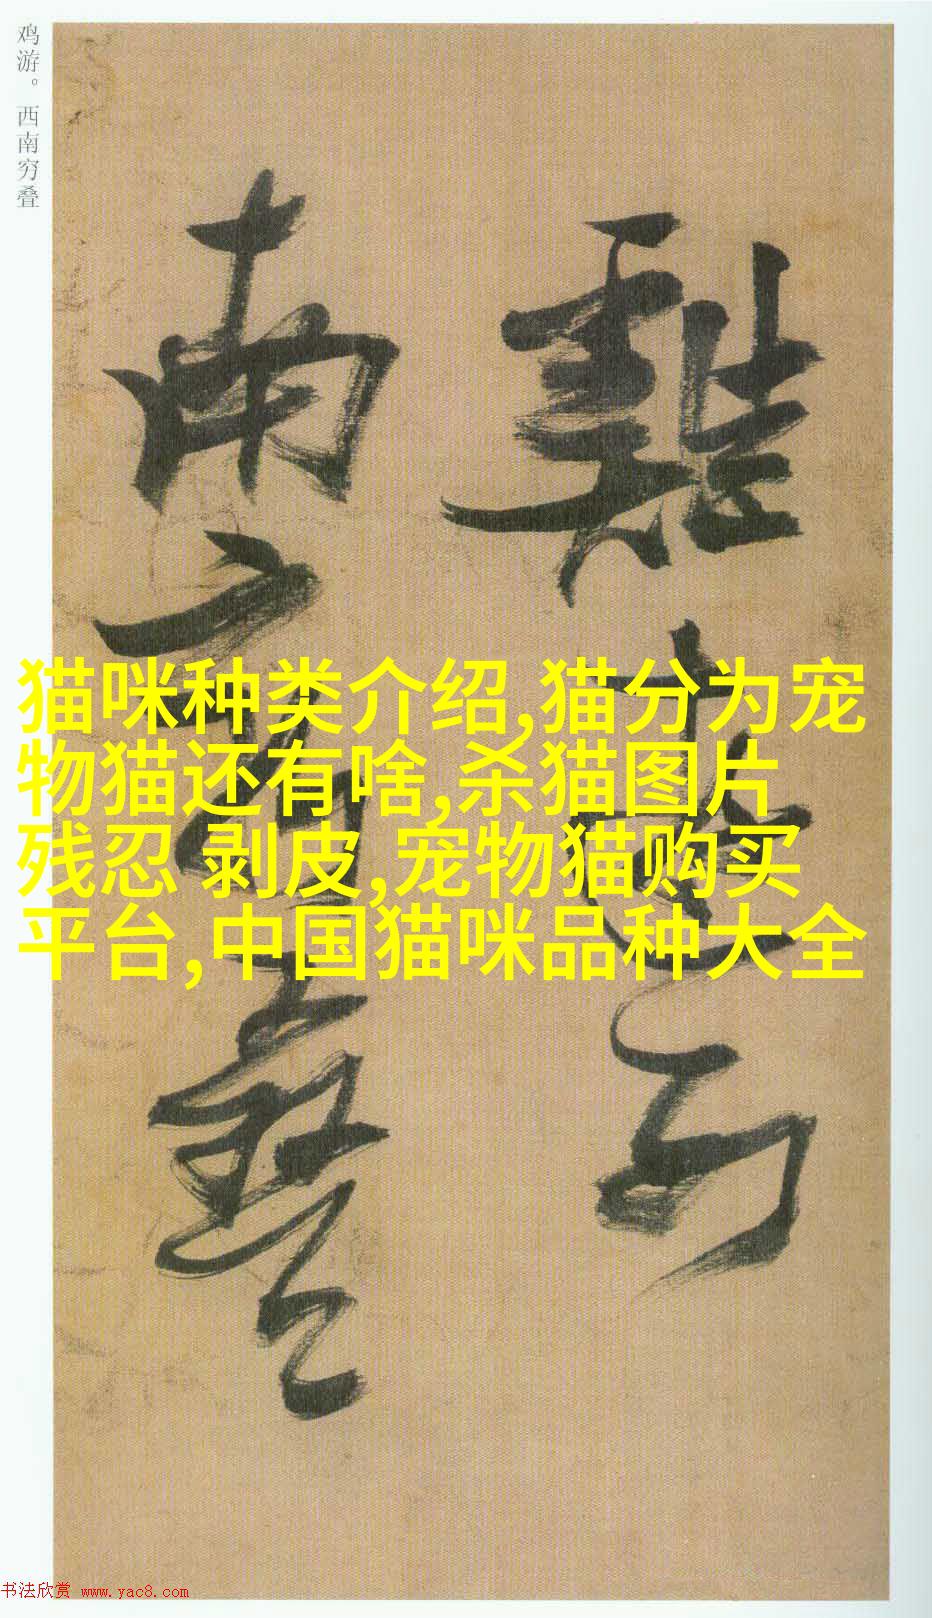 鸡游。西南穷叠
雞遊西
南穷叠
猫咪种类介绍,猫分为宠
物猫还有啥,杀猫图片
残忍 剥皮,宠物猫购买
平台,中国猫咪品种大全
书法欣赏 www.yac8.com